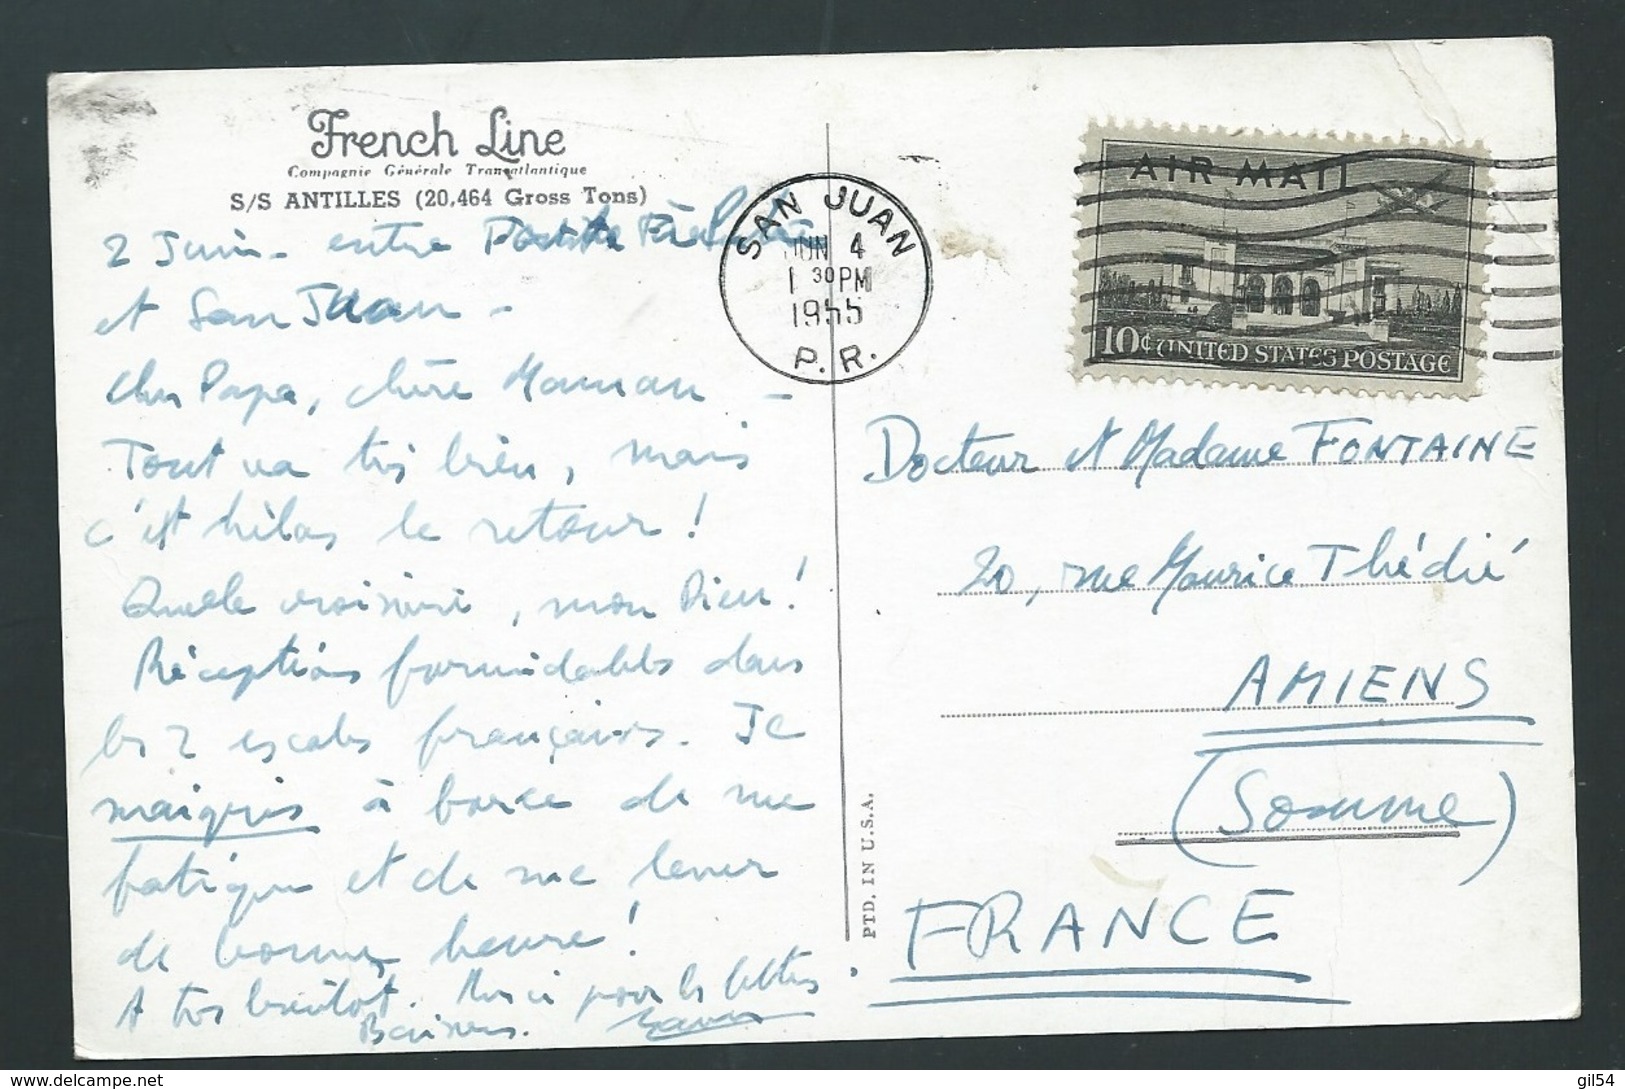 French Line
Compagnie Générale Transatlantique
S/S ANTILLES (20,464 Gross Tons)
2 Juin - entre Pointe
et San Juan -
Cher Papa, chère Maman -
Tout va très bien, mais
c'est hélas le retour !
Quelle croisière, mon Dieu !
Réceptions formidables dans
les 2 escales françaises. Je
maigris à force de me
fatiguer et de me lever
de bonne heure !
A très bientôt. Merci pour les lettres
Baisers.
SAN JUAN
JUN 4
1 30 PM
1955
P. R.
AIR MAIL
10¢ UNITED STATES POSTAGE
Docteur et Madame FONTAINE
20, rue Maurice Thédié
AMIENS
(Somme)
FRANCE
PTD. IN U.S.A.
delcampe.net
gil54